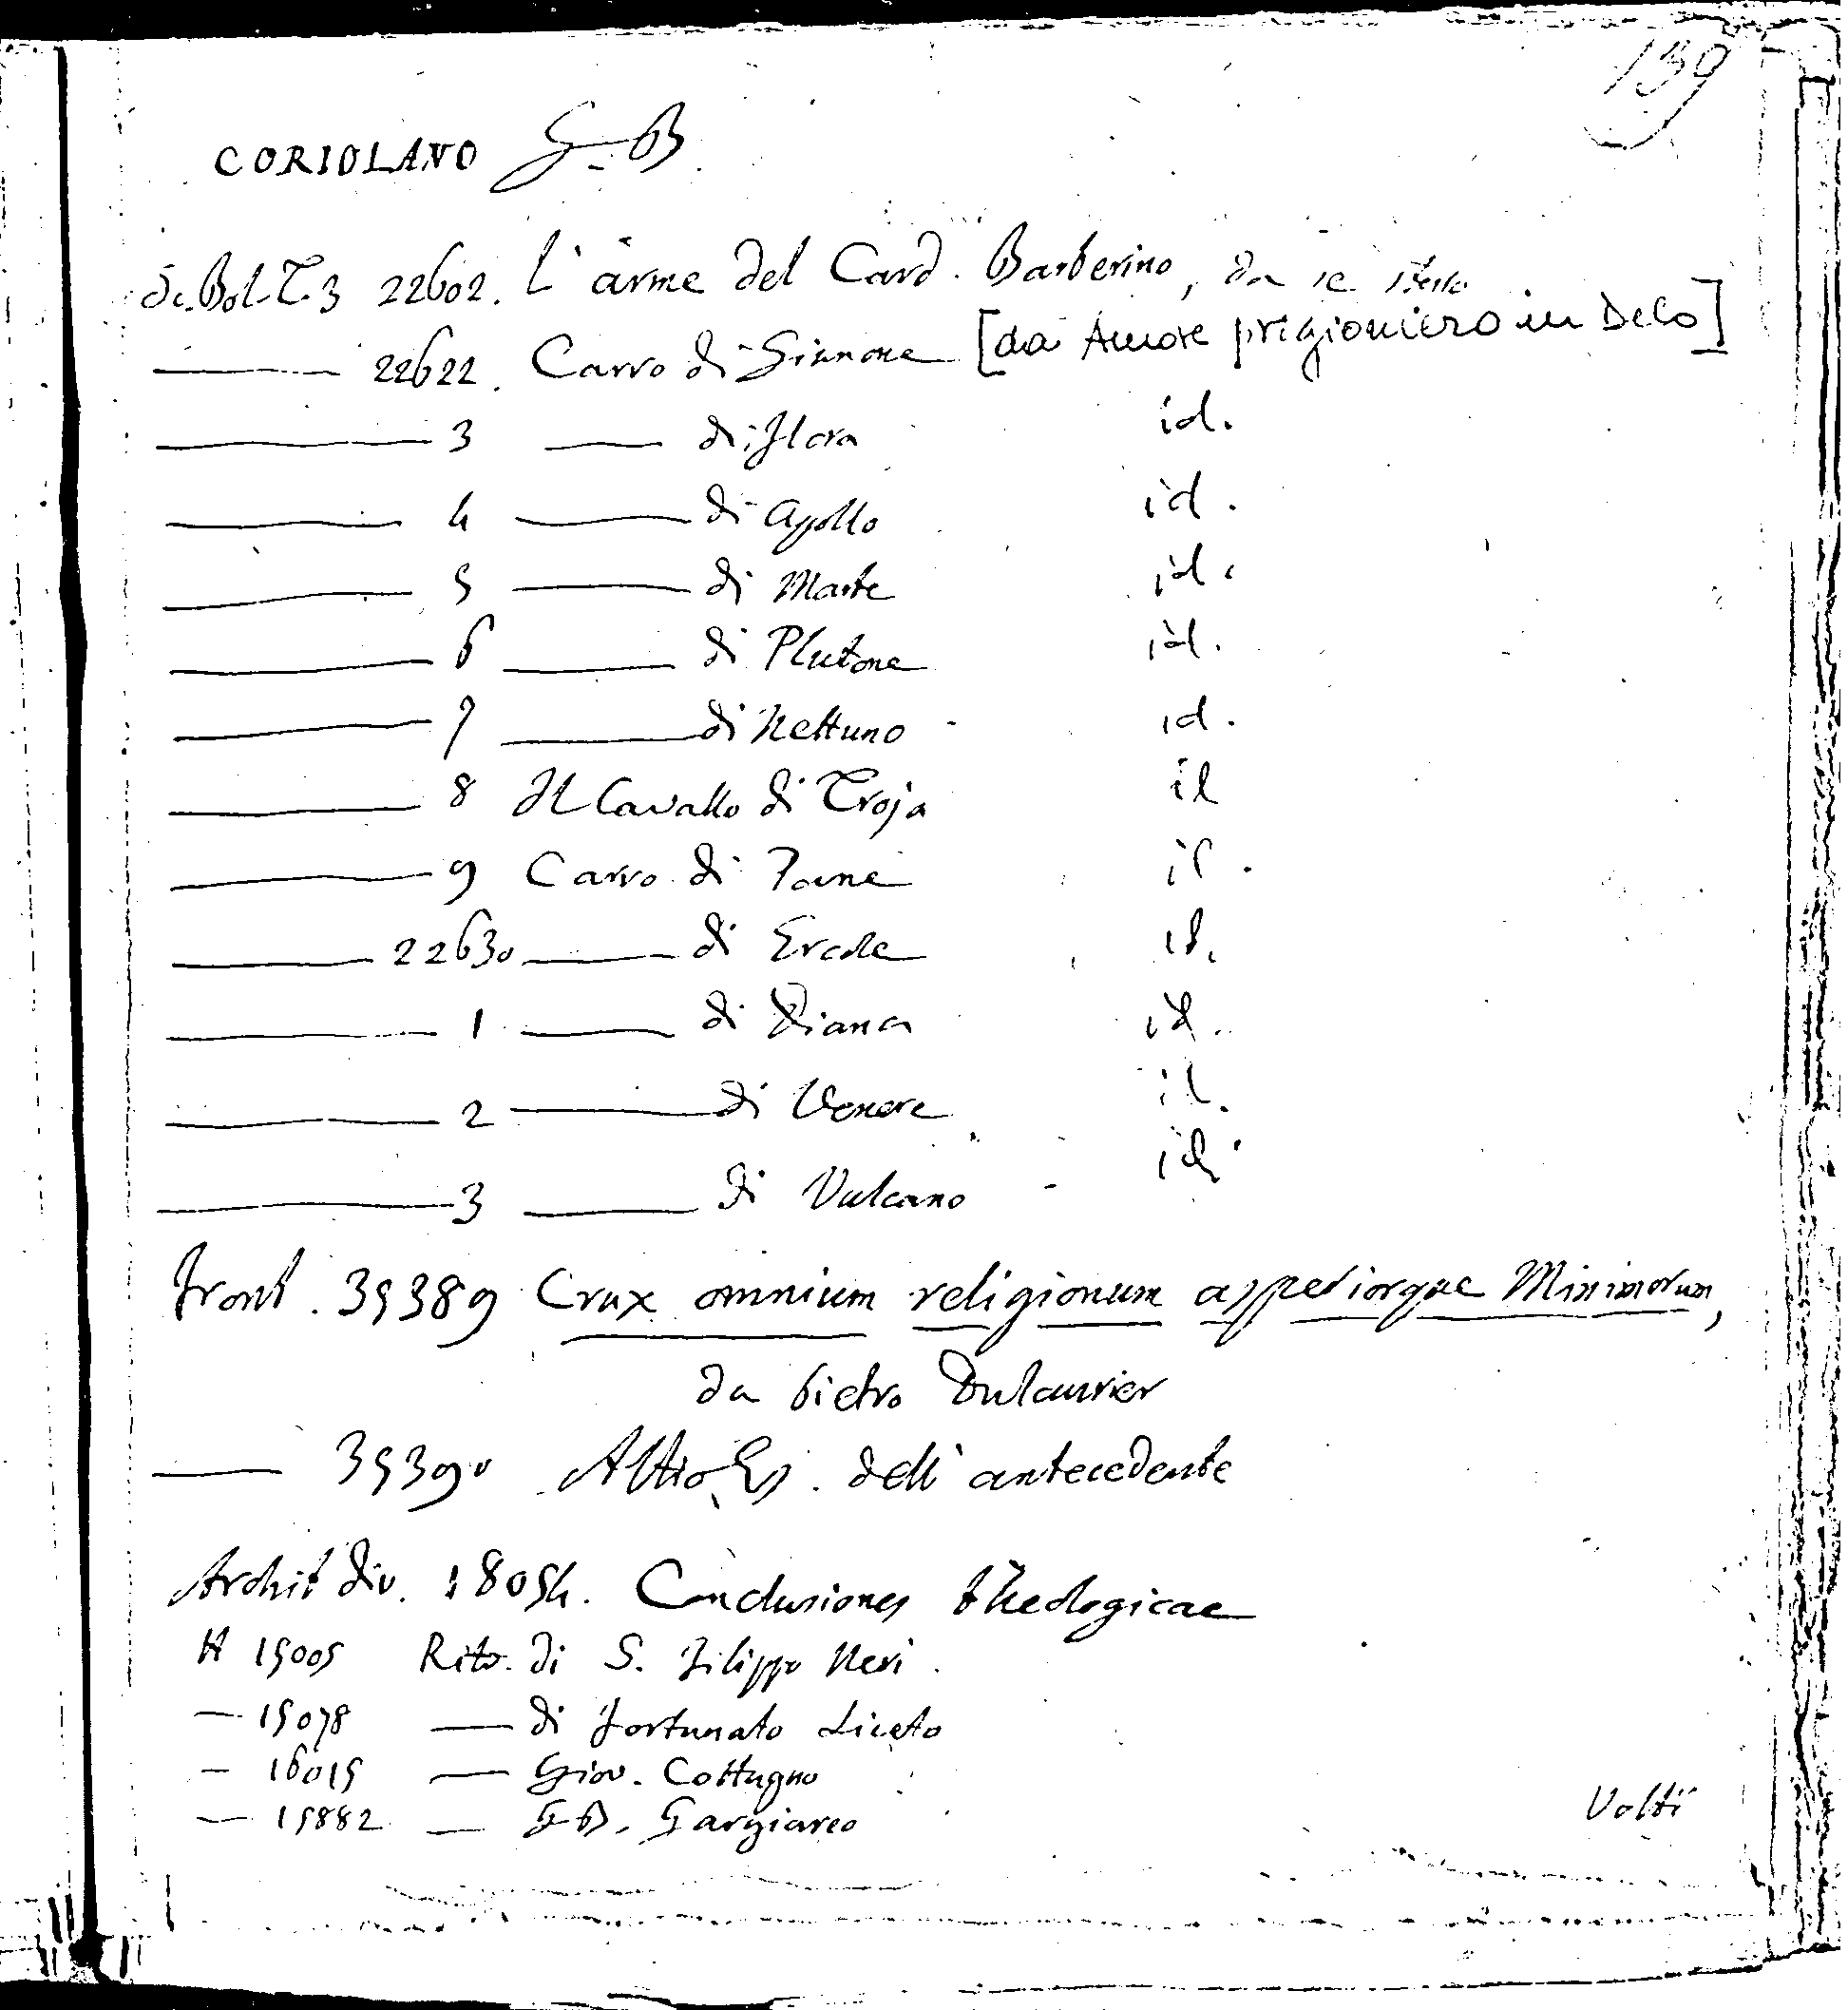 139
CORIOLANO G. B.
Sc. Bol. T. 3 22602. L'arme del Card. Barberino, da se stesso
——— 22622. Carro di Giunone [da Amore prigioniero in Delo]
——— 3 —— di Flora id.
——— 4 —— di Apollo id.
——— 5 —— di Marte id.
——— 6 —— di Plutone id.
——— 7 —— di Nettuno id.
——— 8 Il Cavallo di Troja id
——— 9 Carro di Fame id.
——— 22630 —— di Ercole id.
——— 1 —— di Diana id.
——— 2 —— di Venere id.
——— 3 —— di Vulcano id.
Front. 35389 Crux omnium religionum asperiorque Minimorum,
da Pietro Dulaurier
—— 35390 Altro Es. dell'antecedente
Archit div. 18054. Conclusiones theologicae
H 15005 Ritr. di S. Filippo Neri
— 15078 —— di Fortunato Liceto
— 16015 —— Giov. Cottugno
— 15882 — G B. Gargiareo
Volti